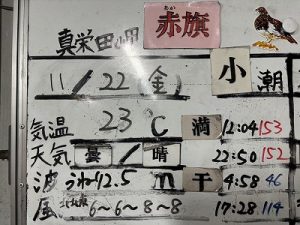 真栄田岬
赤旗
11/22(金) 小潮
気温 23℃ 満 12:04 153
天気 曇/晴 22:50 152
波 うねり2.5m 干 4:58 46
風 6~6~8~8 17:28 114